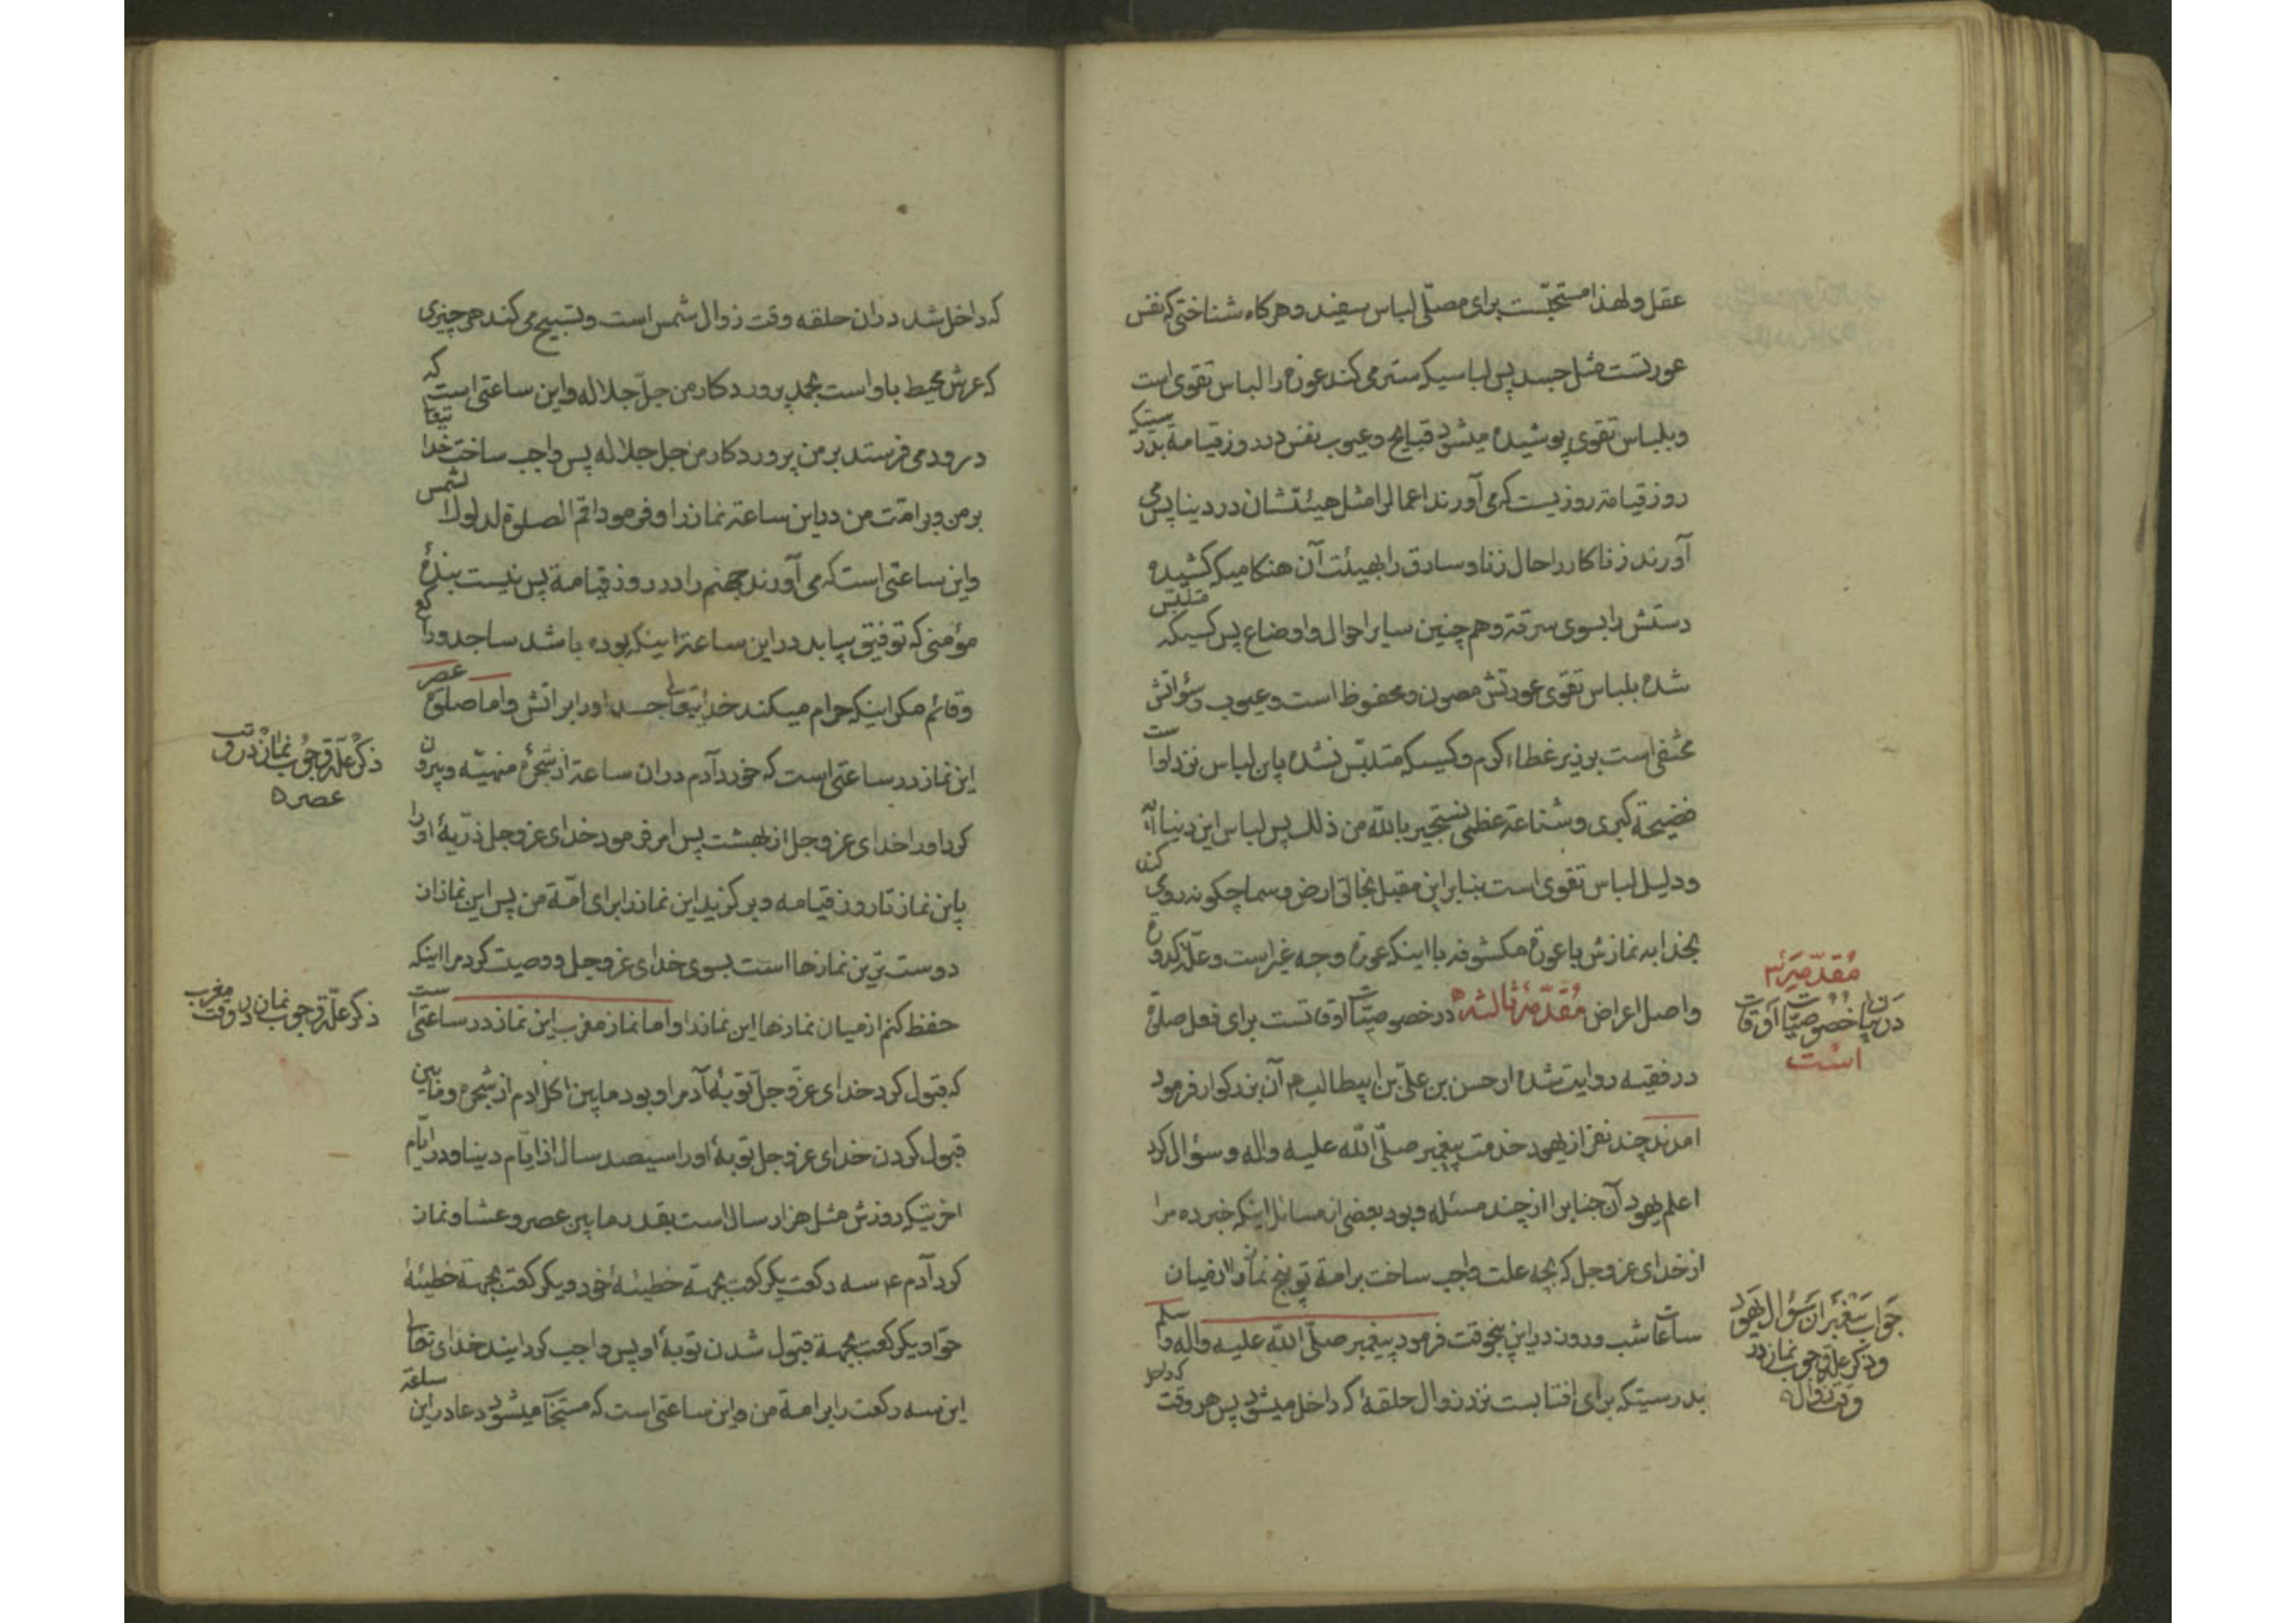 عقل و لهذا مستحبّست برای مصلّی لباس سفید و هرکاه شناختی که نفس
عورتست مثل جسد پس لباسیکه ستر می کند عورة را لباس تقوی است
و بلباس تقوی پوشیده میشود قبایح و عیوب نفس در روز قیامة بدرستیکه
روز قیامة روزیست که می آورند اعمال را مثل هیئتشان در دنیا پس می
آورند زناکار را حال زنا و سارق را بهیئت آن هنکامیکه کشیده
دستش را بسوی سرقة و هم چنین سایر احوال و اوضاع پس کسیکه متلبّس
شده بلباس تقوی عورتش مصون و محفوظ است و عیوب و سؤاتش
مختفی است بزیر غطاء کرم و کسیکه متلبّس نشده باین لباس نزد او است
فضیحة کبری و شناعة عظمی نستجیر بالله من ذلك پس لباس این دنیا آیة
و دلیل لباس تقوی است بنابراین مقبل بخالق ارض و سما چکونه روی کند
بخدا به نمازش با عورة مکشوفه با اینکه عورة وجه غیر است و علّة کدورة
و اصل اعراض مُقدّمهٔ ثالثه در خصوصیّات اوقاتست برای فعل صلوة
مُقدّمهٔ ۳
در بیان خصوصیّات اوقات
است
در فقیه روایت شده از حسن بن علیّ بن ابیطالب ع آن بزرکوار فرمود
امدند چند نفر از یهود خدمت پیغمبر صلّی الله علیه و اله و سؤال کرد
اعلم یهود آن جناب را از چند مسئله و بود بعضی از مسائل اینکه خبر ده مرا
از خدای عزوجل که بچه علت واجب ساخت بر امة تو پنج نماز را در میان
ساعات شب و روز در این پنجوقت فرمود پیغمبر صلّی الله علیه و اله و سلم
جواب پیغمبر از سؤال یهود
و ذکر علّة وجوب نماز در
وقت زوال
بدرستیکه برای افتابست نزد زوال حلقهٔ که داخل میشود پس هر وقت
که داخل
که داخل شد در ان حلقه وقت زوال شمس است و تسبیح می کند هر چیزی
که عرش محیط باو است بحمد پروردکار من جلّ جلاله و این ساعتی است که
درود می فرستد بر من پروردکار من جل جلاله پس واجب ساخت خدا یتعا
بر من و بر امّت من در این ساعة نماز را و فرمود اقم الصلوة لدلوك الشمس
و این ساعتی است که می آورند جهنم را در روز قیامة پس نیست بندهٔ
مؤمنی که توفیق بیابد در این ساعة اینکه بوده باشد ساجد و راکع
و قائم مکر اینکه حرام میکند خدایتعالی جسد او را بر اتش و اما صلوة عصر
این نماز در ساعتی است که خورد آدم در ان ساعة از شجرهٔ منهیّه و بیرون
ذکر علّة وجوب نماز در وقت
عصر
کرد او را خدای عزوجل از بهشت پس امر فرمود خدای عزوجل ذرّیهٔ او را
باین نماز تا روز قیامه و برکزید این نماز را برای امّة من پس این نماز از
دوست ترین نمازها است بسوی خدای عزوجل و وصیت کرد مرا اینکه
حفظ کنم از میان نمازها این نماز را و اما نماز مغرب این نماز در ساعتی است
ذکر علّة وجوب نماز در وقت مغرب
که قبول کرد خدای عزّوجلّ توبهٔ آدم را و بود مابین اکل ادم از شجره و مابین
قبول کردن خدای عزوجل توبهٔ او را سیصد سال از ایّام دنیا و در ایّام
اخرتیکه روزش مثل هزار سال است بقدر مابین عصر و عشا و نماز
کرد آدم ع سه رکعت یکرکعت بجهة خطیئهٔ خود و یکرکعت بجهة خطیئهٔ
حوّا و یکرکعت بجهة قبول شدن توبهٔ او پس واجب کردانید خدای تعالی
این سه رکعت را بر امة من و این ساعتی است که مستجاب میشود دعا در این ساعة